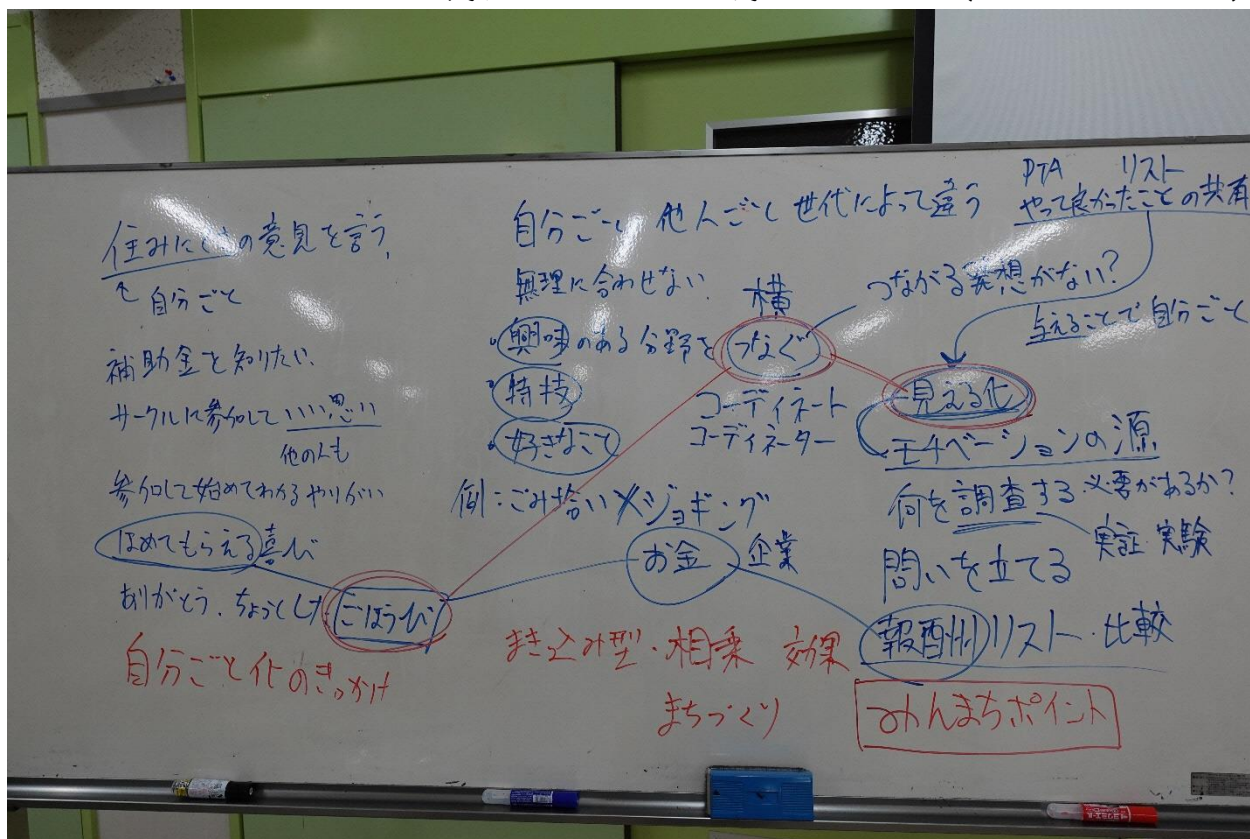 住みにくさの意見を言う、
↑自分ごと
補助金を知りたい、
サークルに参加していい思い
他の人も
参加して始めてわかるやりがい
ほめてもらえる喜び
ありがとう、ちょっとしたごほうび
自分ごと化のきっかけ
自分ごと 他人ごと 世代によって違う
無理に合わせない
横
・興味のある分野をつなぐ
・特技
・好きなこと
コーディネート
コーディネーター
例:ごみ拾い×ジョギング
お金 企業
まき込み型・相乗 効果
まちづくり
PTA リスト
やって良かったことの共有
つながる発想がない?
与えることで自分ごと
見える化
モチベーションの源
何を調査する必要があるか?
実証 実験
問いを立てる
報酬 リスト・比較
みんまちポイント